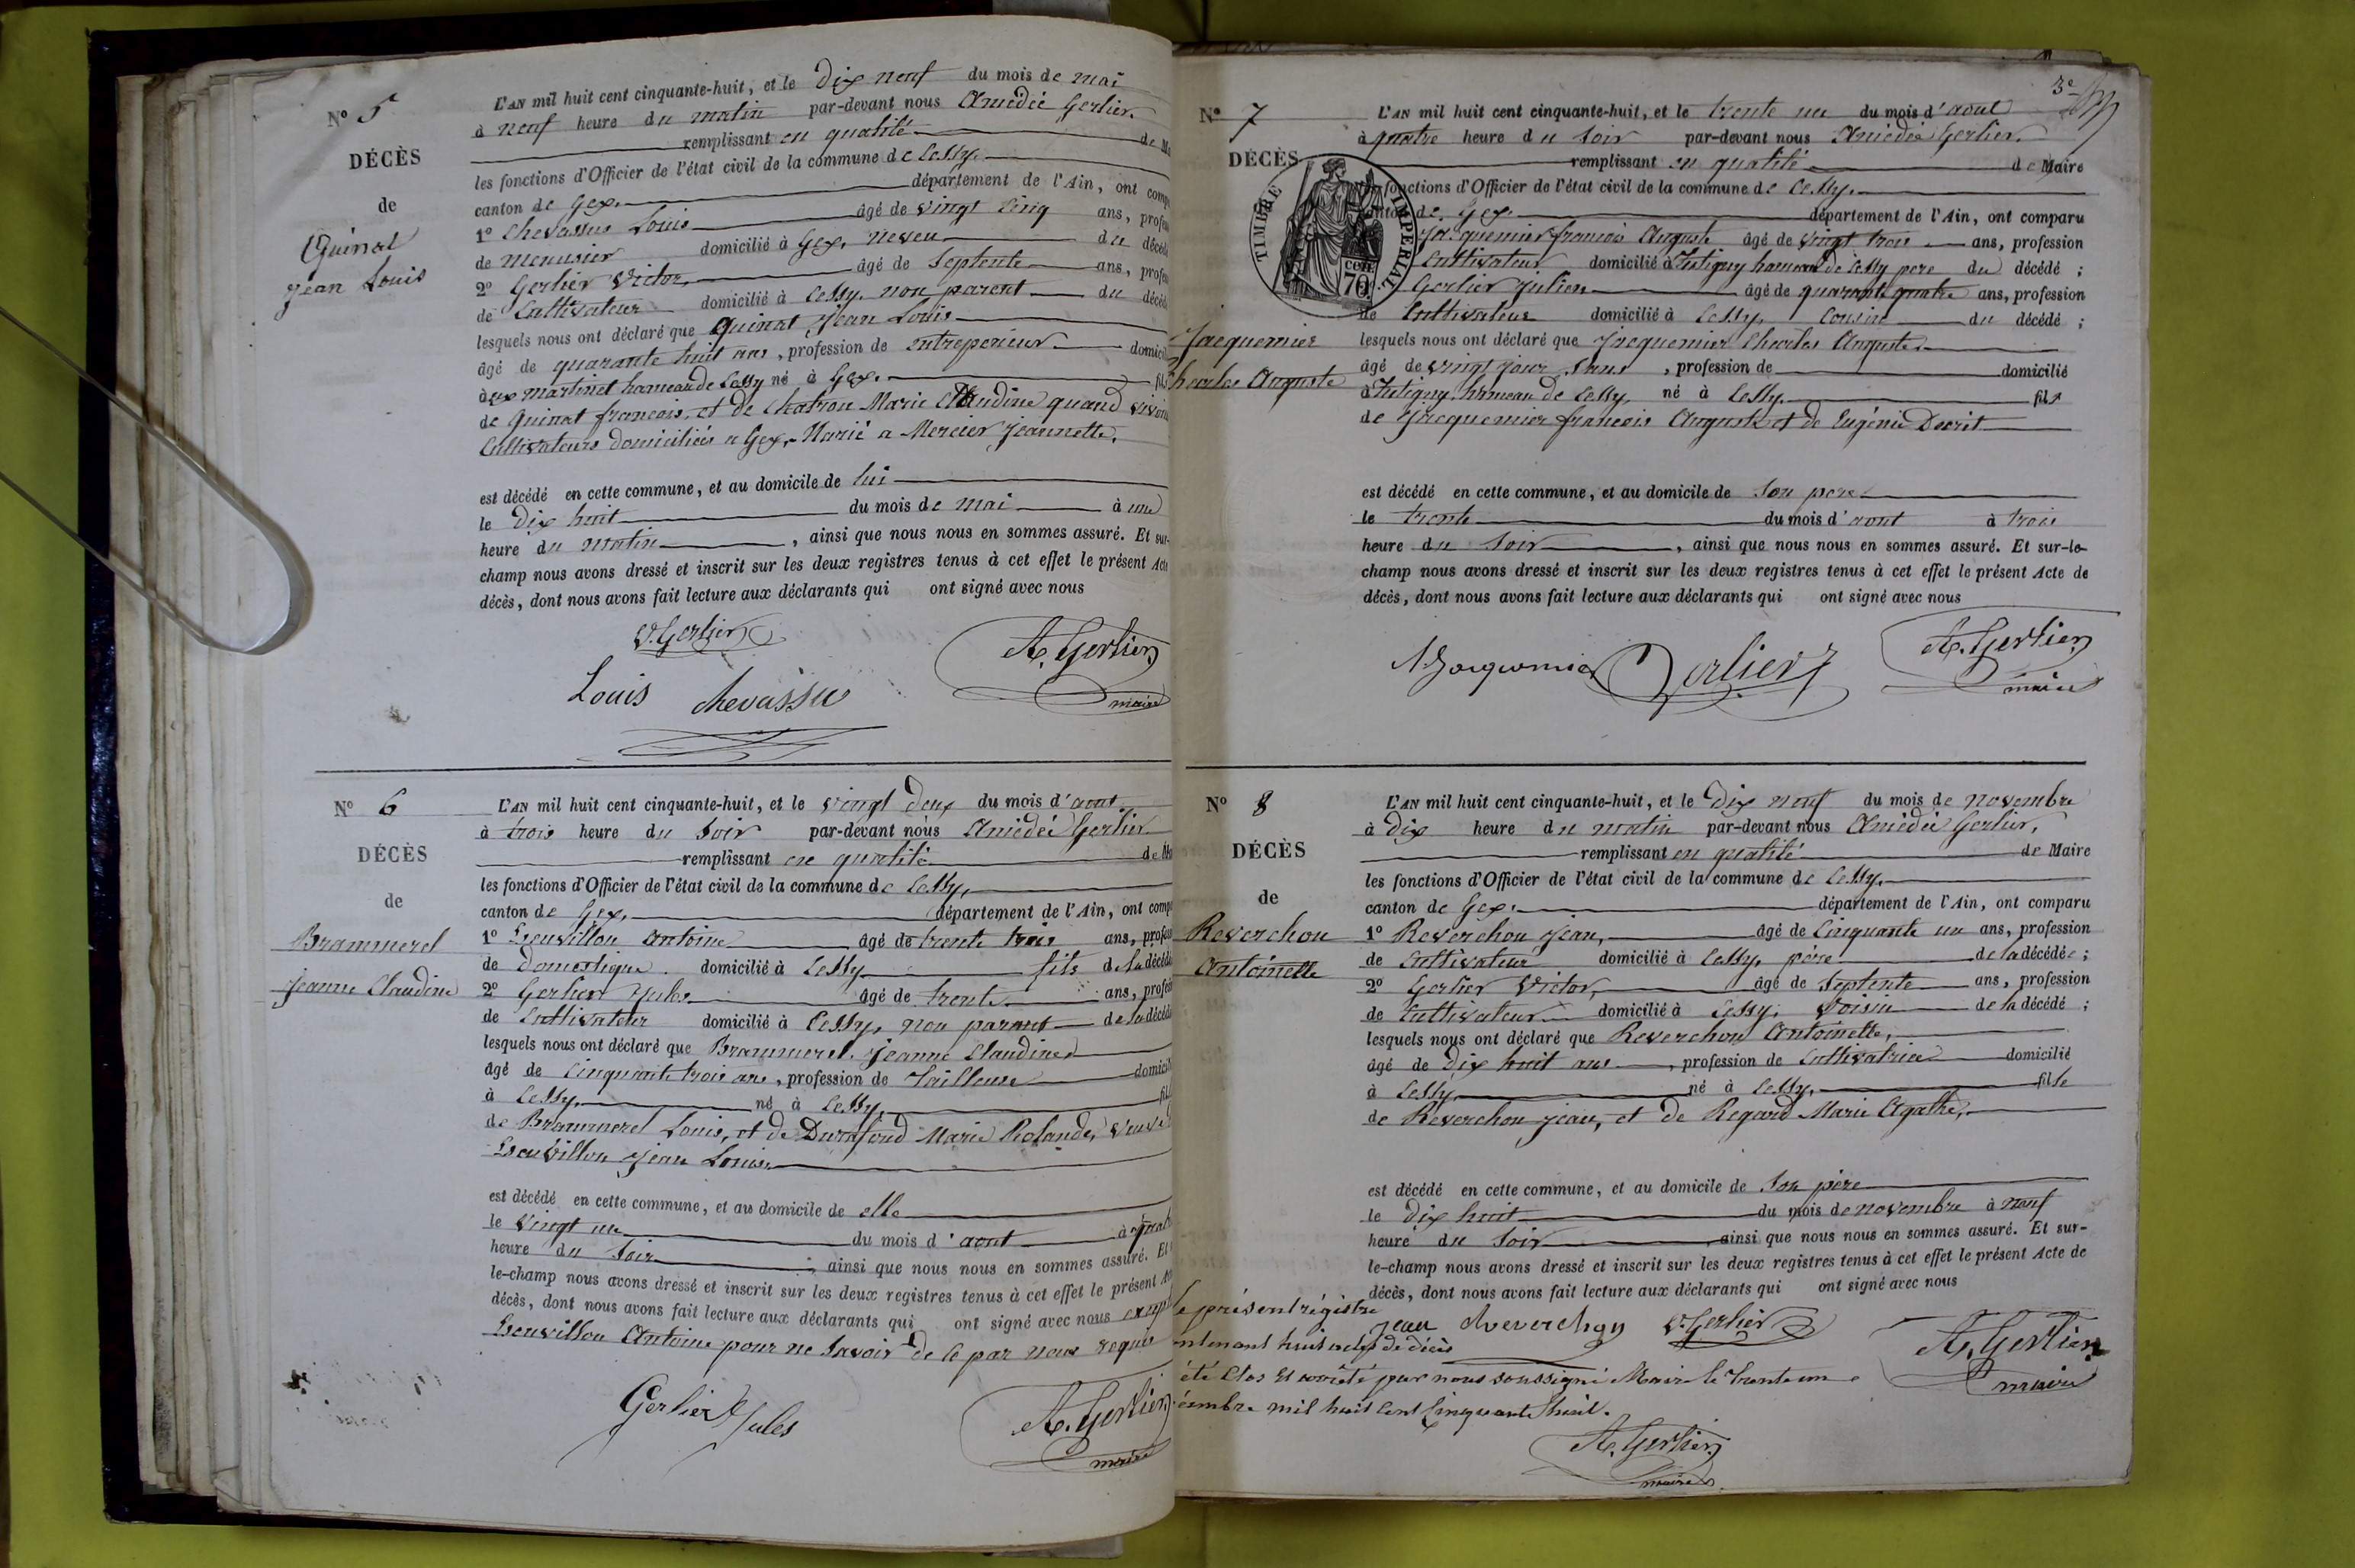 N° 5
DÉCÈS
de
Quinat
Jean Louis
L'AN mil huit cent cinquante-huit, et le dix neuf du mois de mai
à neuf heure du matin par-devant nous Amédée Gerlier.
remplissant en qualité de
les fonctions d'Officier de l'état civil de la commune de Cessy.
canton de Gex. département de l'Ain, ont
1° Chevassus Louis âgé de vingt cinq ans,
de menuisier domicilié à Gex. neveu du
2° Gerlier Victor, âgé de septente ans,
de Cultivateur domicilié à Cessy. non parent du
lesquels nous ont déclaré que Quinat Jean Louis
âgé de quarante huit ans, profession de entrepeneur
martinet hameau de Cessy né à Gex.
de Quinat francois, et de Chatron Marie Claudine quand
Cultivateurs domiciliés a Gex, Marié a Mercier Jeannette.
est décédé en cette commune, et au domicile de lui
le dix huit du mois de mai à une
heure du matin, ainsi que nous nous en sommes assuré. Et sur-
champ nous avons dressé et inscrit sur les deux registres tenus à cet effet le présent Acte
décès, dont nous avons fait lecture aux déclarants qui ont signé avec nous
V. Gerlier
A. Gerlier
maire
Louis Chevassu
N° 6
DÉCÈS
de
Brammerel
Jeanne Claudine
L'AN mil huit cent cinquante-huit, et le vingt deux du mois d'aout
à trois heure du soir par-devant nous Amédée Gerlier
remplissant en qualité de
les fonctions d'Officier de l'état civil de la commune de Cessy,
canton de Gex, département de l'Ain, ont
1° Antoine âgé de trente trois ans,
de domestique. domicilié à Cessy fils de la
2° Gerlier Jules âgé de trente ans,
de Cultivateur domicilié à Cessy, non parent de la
lesquels nous ont déclaré que Brammerel Jeanne Claudine
âgé de cinquante trois ans, profession de Tailleuse
à Cessy, né à Cessy,
de Brammerel Louis, et de Durafond Marie Rolande, veuve
Jean Louis
est décédé en cette commune, et au domicile de elle
le vingt un du mois d'aout à
heure du soir, ainsi que nous nous en sommes assuré. Et
le-champ nous avons dressé et inscrit sur les deux registres tenus à cet effet le présent
décès, dont nous avons fait lecture aux déclarants qui ont signé avec nous
Antoine pour ne savoir de ce par nous requis
Gerlier Jules
A. Gerlier
maire
3e
N° 7
DÉCÈS
TIMBRE IMPERIAL
70 cen.
Jacquemier
Charles Auguste
L'AN mil huit cent cinquante-huit, et le trente un du mois d'aout
à quatre heure du soir par-devant nous Amédée Gerlier.
remplissant en qualité de Maire
fonctions d'Officier de l'état civil de la commune de Cessy.
canton de Gex. département de l'Ain, ont comparu
Jacquemier francois Auguste âgé de vingt trois ans, profession
Cultivateur domicilié à Tutigny hameau de Cessy pere du décédé ;
Gerlier Julien âgé de quarante quatre ans, profession
de Cultivateur domicilié à Cessy, cousin du décédé ;
lesquels nous ont déclaré que Jacquemier Charles Auguste.
âgé de vingt jours, profession de domicilié
à Tutigny hameau de Cessy, né à Cessy. fils
de Jacquemier francois Auguste et de Eugénie Decrit
est décédé en cette commune, et au domicile de son pere
le trente du mois d'aout à trois
heure du soir, ainsi que nous nous en sommes assuré. Et sur-le-
champ nous avons dressé et inscrit sur les deux registres tenus à cet effet le présent Acte de
décès, dont nous avons fait lecture aux déclarants qui ont signé avec nous
Jacquemier Gerlier J A. Gerlier
maire
N° 8
DÉCÈS
de
Reverchon
Antoinette
L'AN mil huit cent cinquante-huit, et le dix neuf du mois de novembre
à dix heure du matin par-devant nous Amédée Gerlier,
remplissant en qualité de Maire
les fonctions d'Officier de l'état civil de la commune de Cessy.
canton de Gex. département de l'Ain, ont comparu
1° Reverchon Jean, âgé de cinquante un ans, profession
de Cultivateur domicilié à Cessy, père de la décédée ;
2° Gerlier Victor, âgé de septente ans, profession
de Cultivateur domicilié à Cessy, voisin de la décédé ;
lesquels nous ont déclaré que Reverchon Antoinette,
âgé de dix huit ans, profession de Cultivatrice domicilié
à Cessy né à Cessy, fille
de Reverchon Jean, et de Regard Marie Agathe,
est décédé en cette commune, et au domicile de son père
le dix huit du mois de novembre à neuf
heure du soir, ainsi que nous nous en sommes assuré. Et sur-
le-champ nous avons dressé et inscrit sur les deux registres tenus à cet effet le présent Acte de
décès, dont nous avons fait lecture aux déclarants qui ont signé avec nous
Jean Reverchon V. Gerlier A. Gerlier
maire
le présent régistre
ntenant huit actes de décès
été clos et arrêté par nous soussigné Maire le trente un
cembre mil huit cent cinquante huit.
A. Gerlier
maire